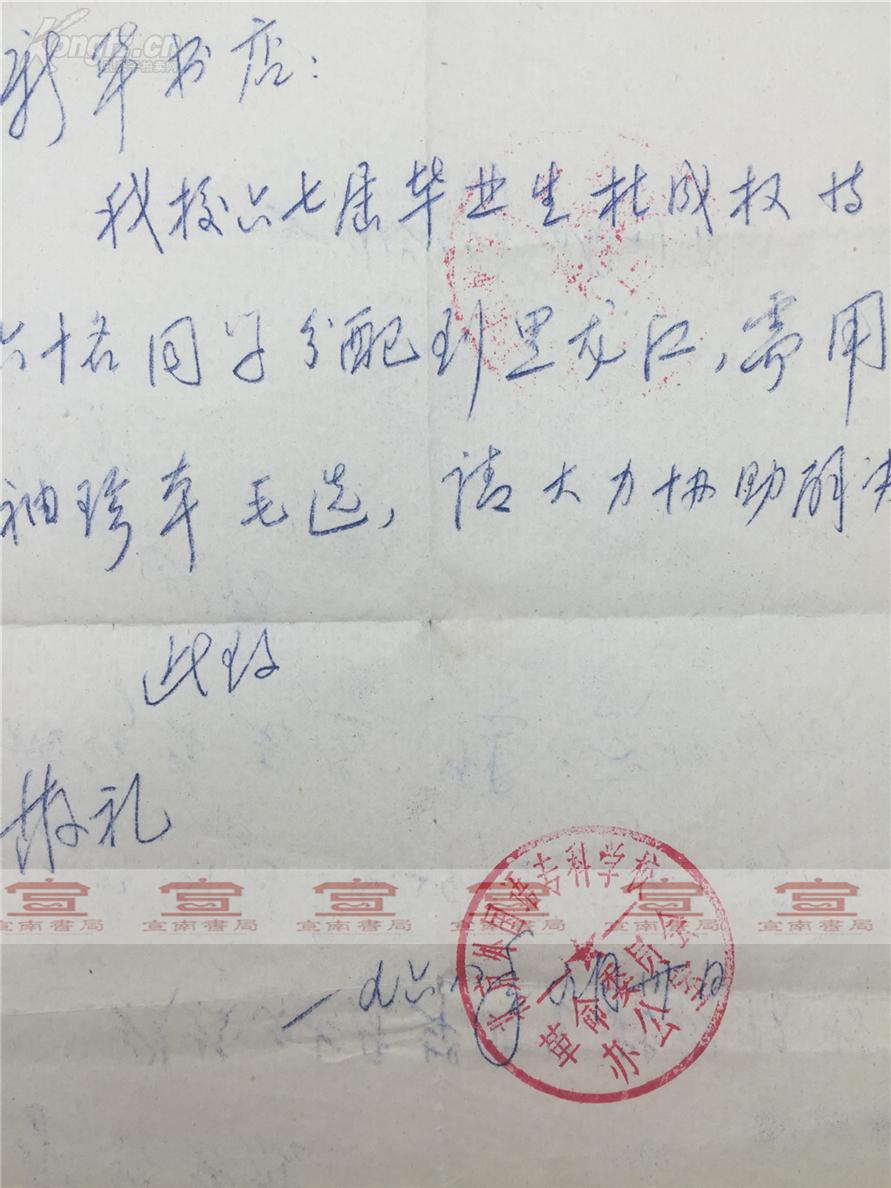 Kongfz.cn
新华书店：
我校六七届毕业生杜成权
六十名同学分配到黑龙江，需用
袖珍本毛选，请大力协助解决
此致
敬礼
一九六八年 月卅日
北京外国语专科学校
革命委员会
办公室
宣南書局 宣南書局 宣南書局 宣南書局 宣南書局 宣南書局